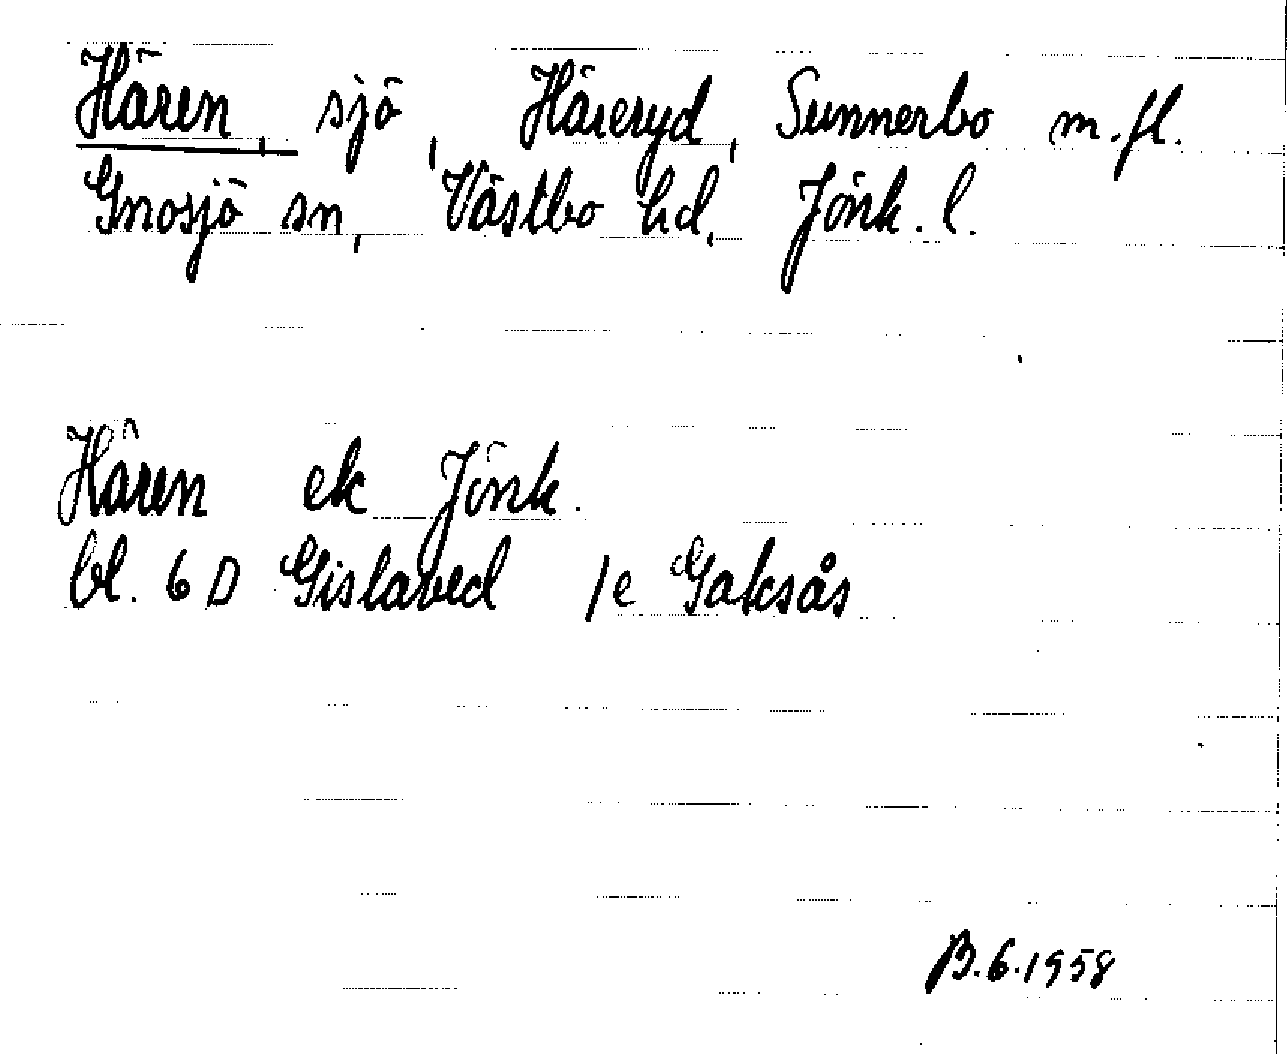 Hären, sjö, Häreryd, Sunnerbo m.fl.
Gnosjö sn, Västbo hd, Jönk. l.
Hären ek Jönk.
bl. 6 D Gislaved 1e Gaksås
B.6.1958